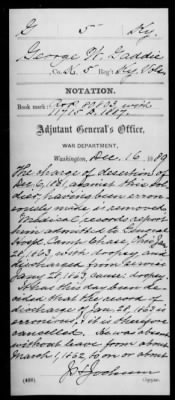 G 5 Ky.
George W. Gaddie
, Co. K, 5 Reg't Ky. Vols.
NOTATION.
Book mark:
Adjutant General's Office,
WAR DEPARTMENT,
Washington, Dec. 16, 1889
The charge of desertion of
Dec. 6, 1861, against this sol-
dier, having been erron-
eously made is removed.
Medical records report
him admitted to General
Hospl. Camp Chase, Ohio, Jan.
20, 1863, with dropsy, and
discharged from service
Jany 28, 1863, cause: dropsy.
It has this day been de-
cided that the record of
discharge of Jan. 28, 1863 is
erroneous; it is therefore
cancelled. He was absent
without leave from about
March 1, 1862, to on or about
Copyist.